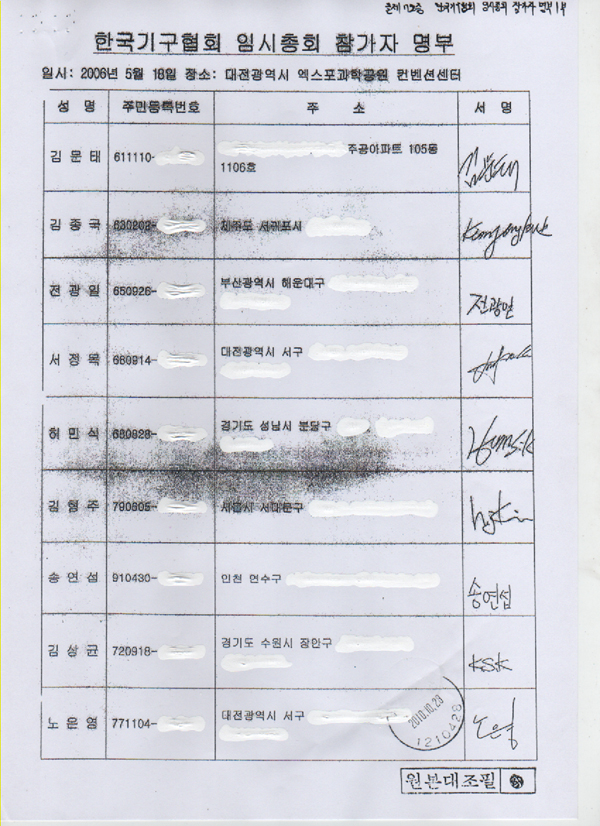 한국기구협회 임시총회 참가자 명부
일시: 2006년 5월 18일 장소: 대전광역시 엑스포과학공원 컨벤션센터
성 명 주민등록번호 주 소 서 명
김 문 태 611110- 주공아파트 105동
1106호
김 종 국 630202- 제주도 서귀포시
전 광 일 650926- 부산광역시 해운대구 전광일
서 정 목 660914- 대전광역시 서구
허 민 식 680828- 경기도 성남시 분당구
김 형 주 790605- 서울시 서대문구
송 연 섭 910430- 인천 연수구 송연섭
김 상 균 720918- 경기도 수원시 장안구 KSK
노 운 영 771104- 대전광역시 서구
2010.10.29
1210428
원본대조필